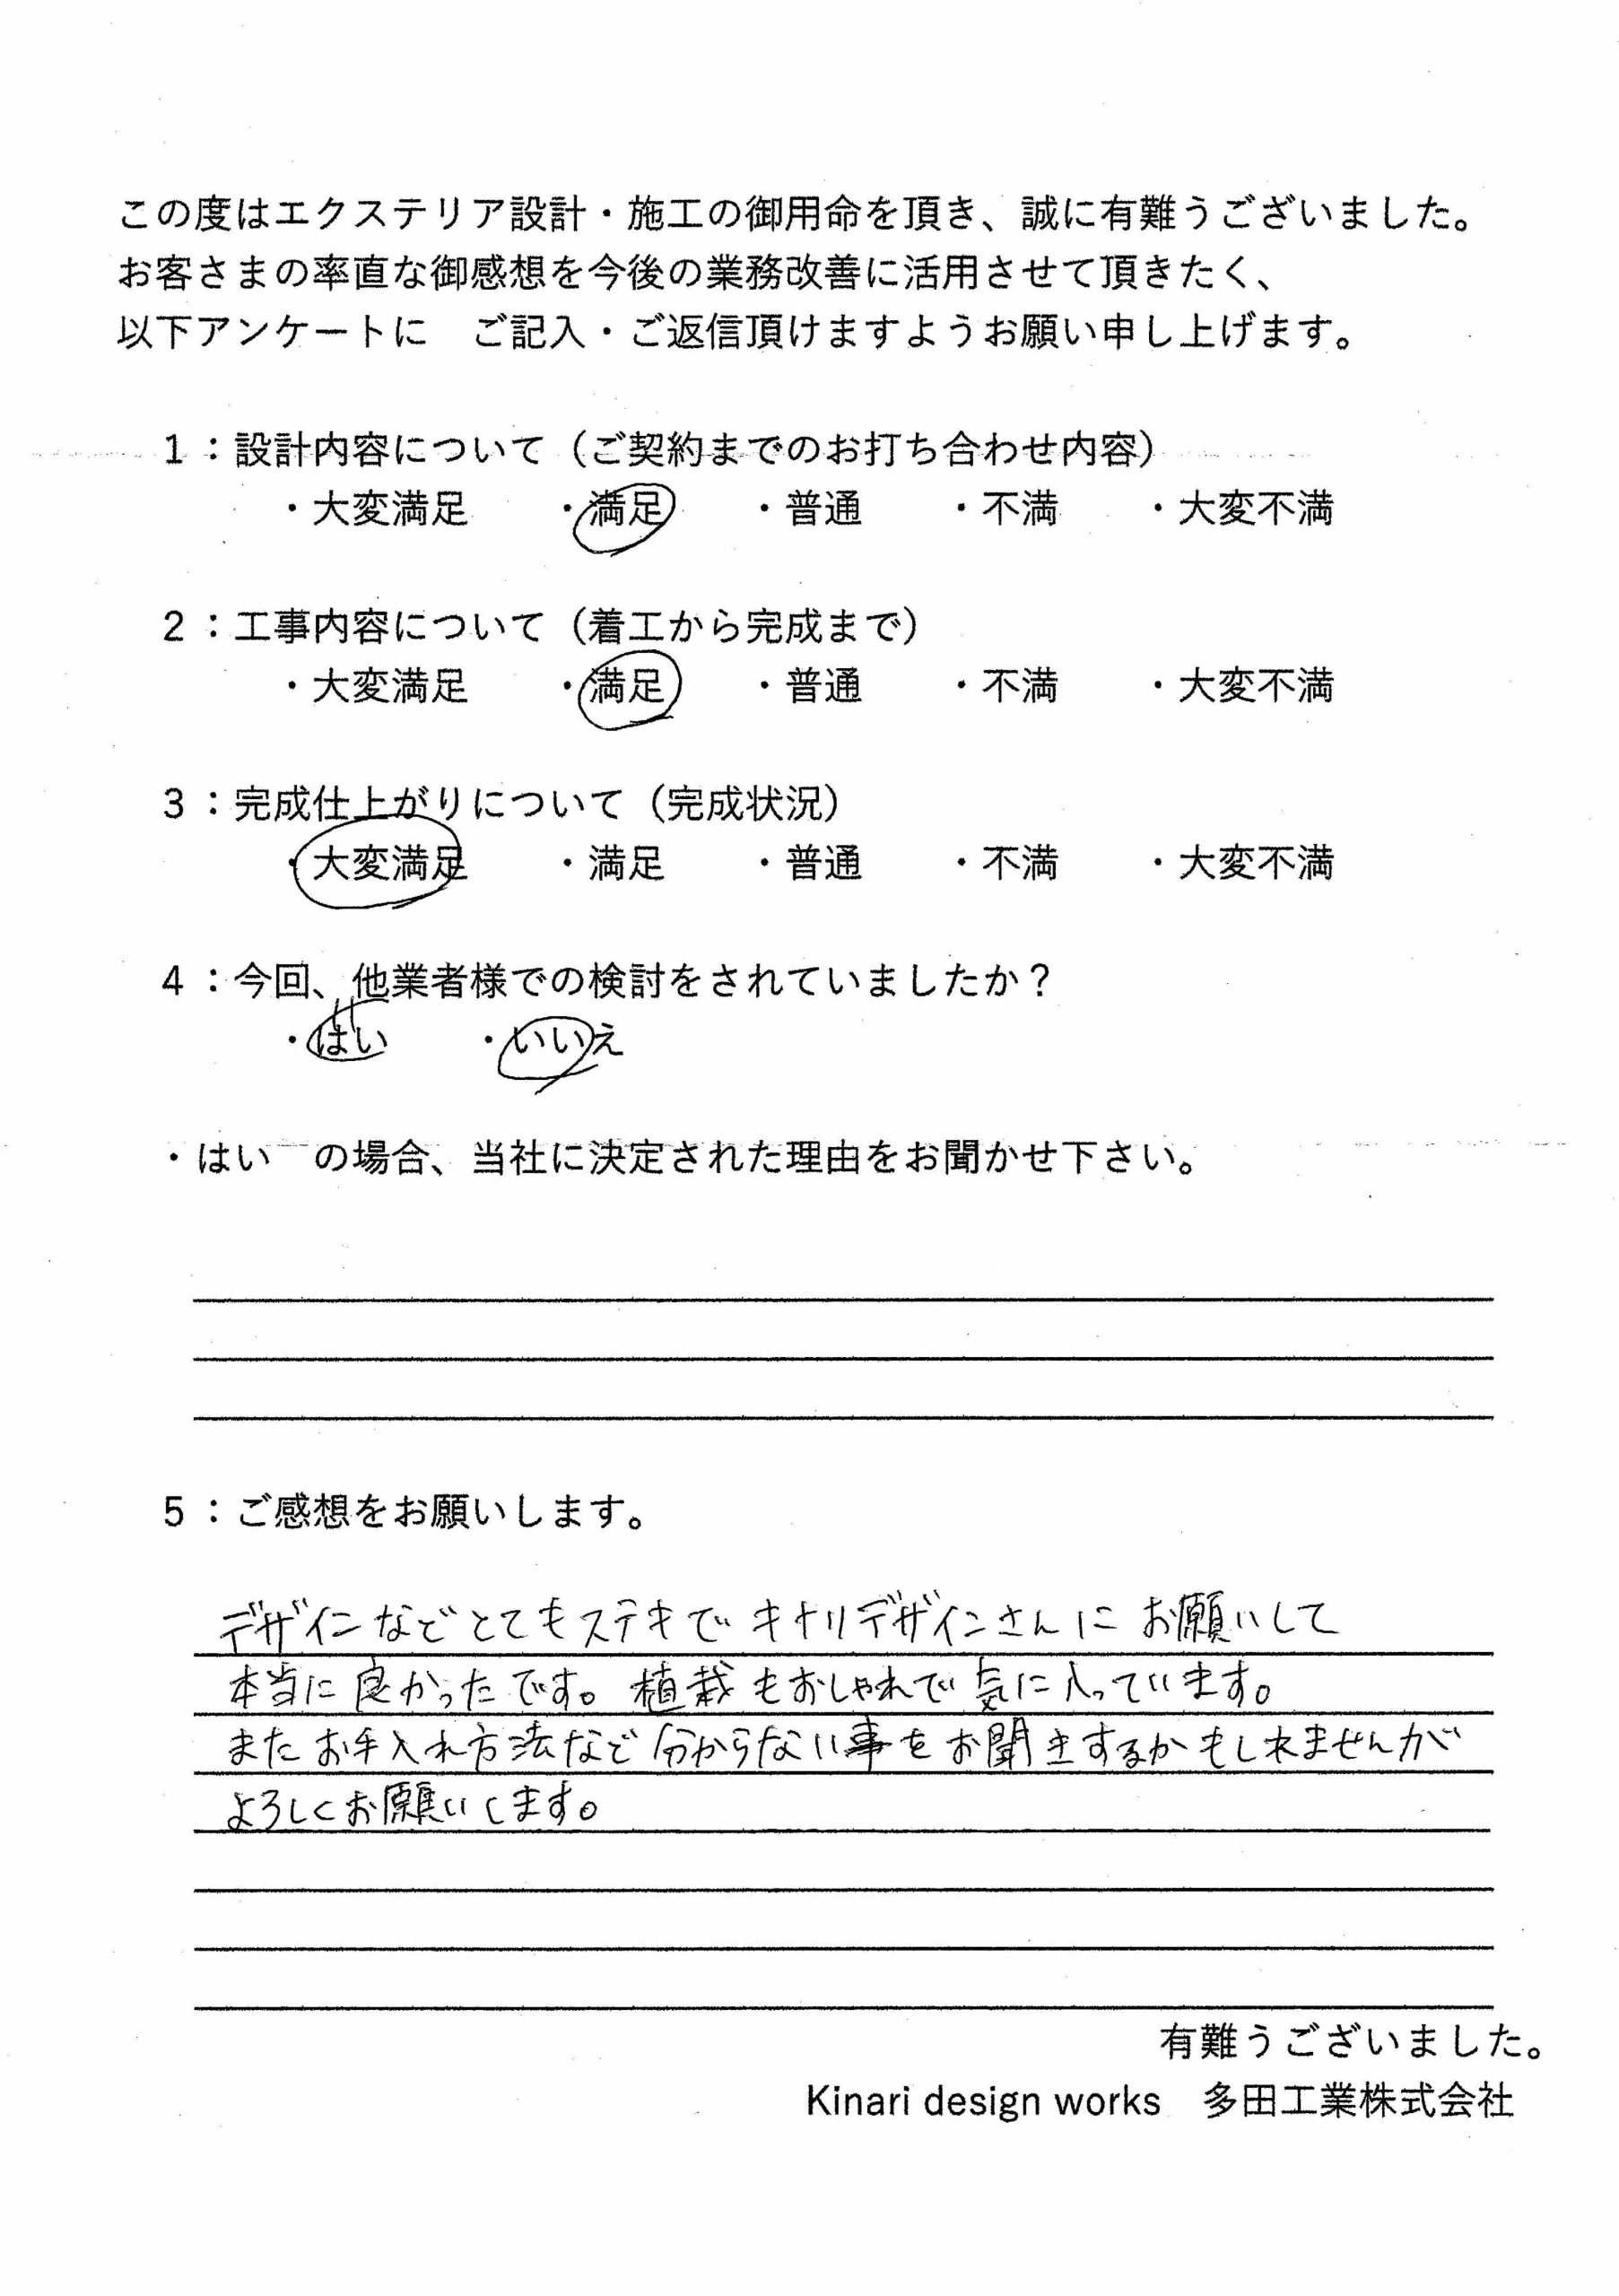 この度はエクステリア設計・施工の御用命を頂き、誠に有難うございました。
お客さまの率直な御感想を今後の業務改善に活用させて頂きたく、
以下アンケートに　ご記入・ご返信頂けますようお願い申し上げます。
1：設計内容について（ご契約までのお打ち合わせ内容）
・大変満足　・満足　・普通　・不満　・大変不満
2：工事内容について（着工から完成まで）
・大変満足　・満足　・普通　・不満　・大変不満
3：完成仕上がりについて（完成状況）
・大変満足　・満足　・普通　・不満　・大変不満
4：今回、他業者様での検討をされていましたか？
・はい　・いいえ
・はい　の場合、当社に決定された理由をお聞かせ下さい。
5：ご感想をお願いします。
デザインなどとてもステキで キナリデザインさんに お願いして
本当に良かったです。植栽もおしゃれで気に入っています。
またお手入れ方法など分からない事をお聞きするかもしれませんが
よろしくお願いします。
有難うございました。
Kinari design works　多田工業株式会社